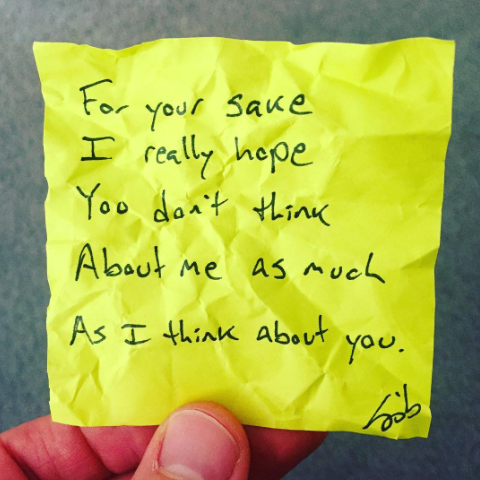 For your sake
I really hope
You don't think
About me as much
As I think about you.